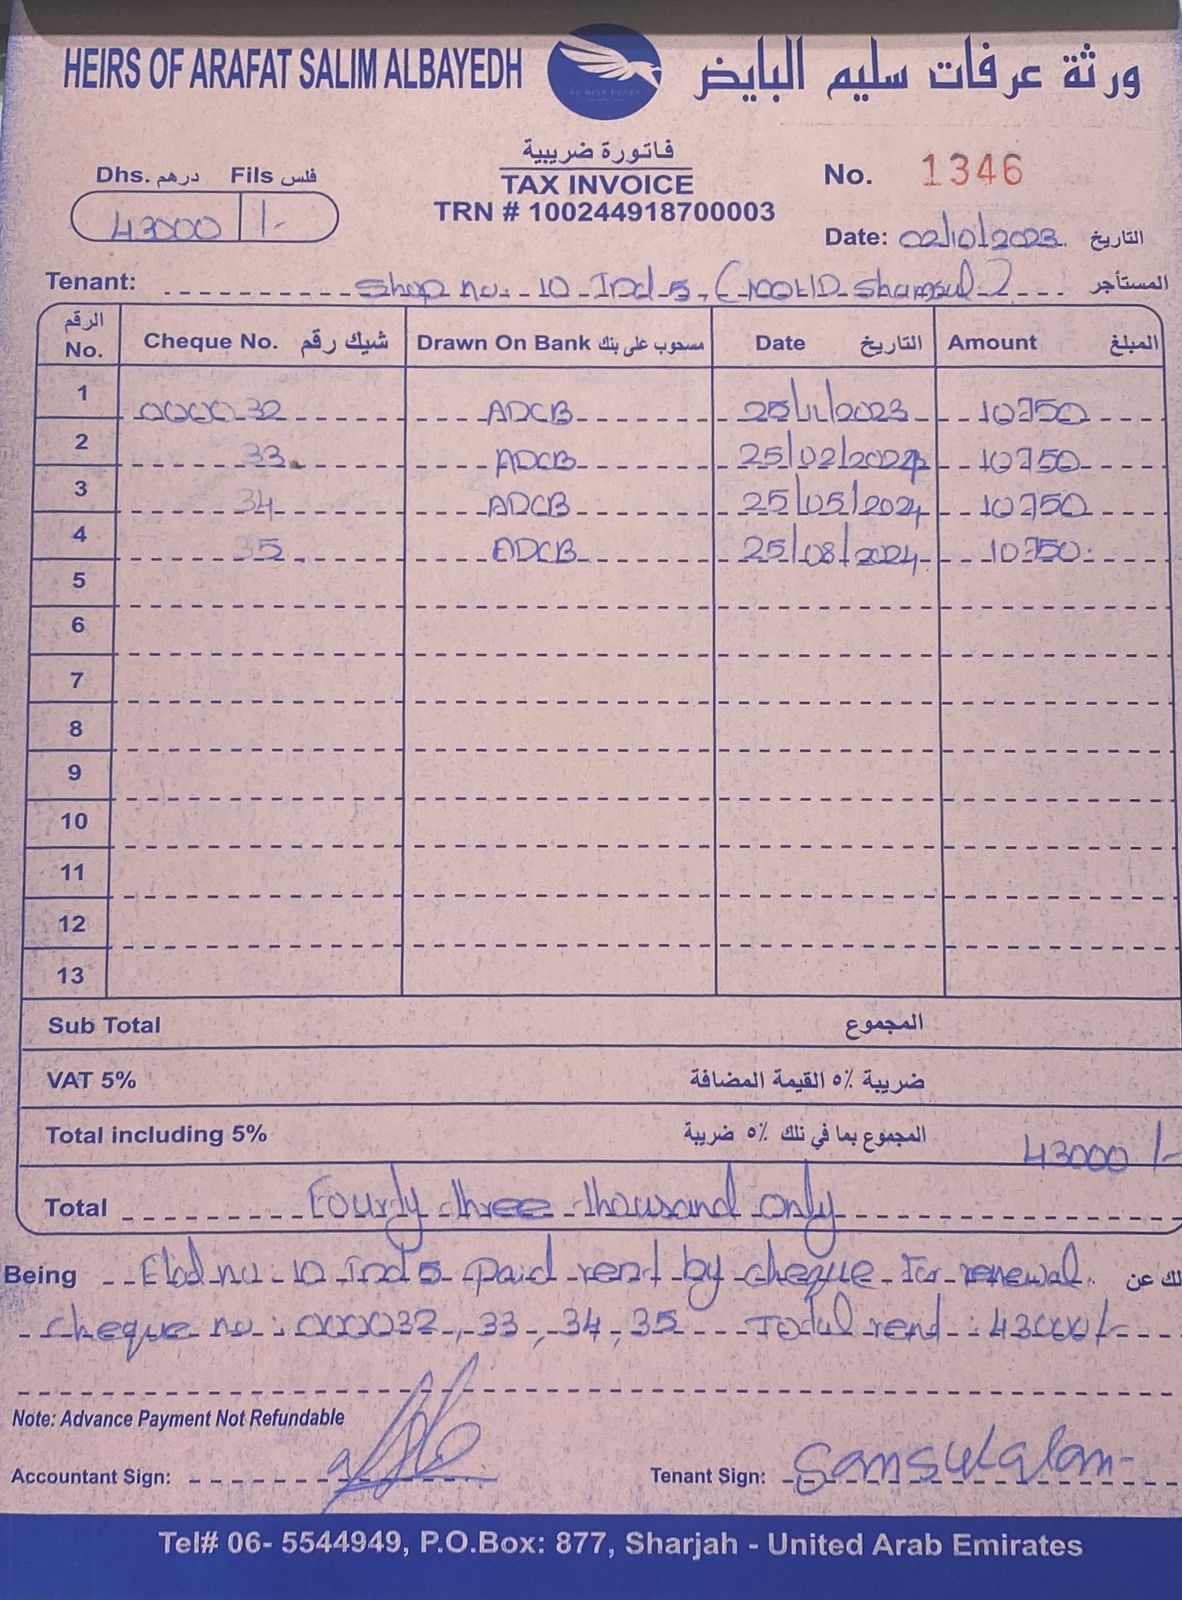 HEIRS OF ARAFAT SALIM ALBAYEDH
AL NISR PLAZA
ورثة عرفات سليم البايض
فاتورة ضريبية
TAX INVOICE
TRN # 100244918700003
Dhs. درهم Fils فلس
43000 /-
No. 1346
Date: 02/10/2023 التاريخ
Tenant: Shop no. 10 Ind 5. ( Shamsul ) المستأجر
الرقم No. Cheque No. شيك رقم Drawn On Bank مسحوب على بنك Date التاريخ Amount المبلغ
1 000032 ADCB 25/11/2023 10750
2 33 ADCB 25/02/2024 10750
3 34 ADCB 25/05/2024 10750
4 35 ADCB 25/08/2024 10750
5
6
7
8
9
10
11
12
13
Sub Total المجموع
VAT 5% ضريبة ٥٪ القيمة المضافة
Total including 5% المجموع بما في ذلك ٥٪ ضريبة 43000 /-
Total Fourty three thousand only
Being no. 10 Ind 5 paid rent by cheque For renewal. لك عن
cheque no: 000032, 33, 34, 35 Total rend: 43000/-
Note: Advance Payment Not Refundable
Accountant Sign:
Tenant Sign: Samsulalam
Tel# 06- 5544949, P.O.Box: 877, Sharjah - United Arab Emirates